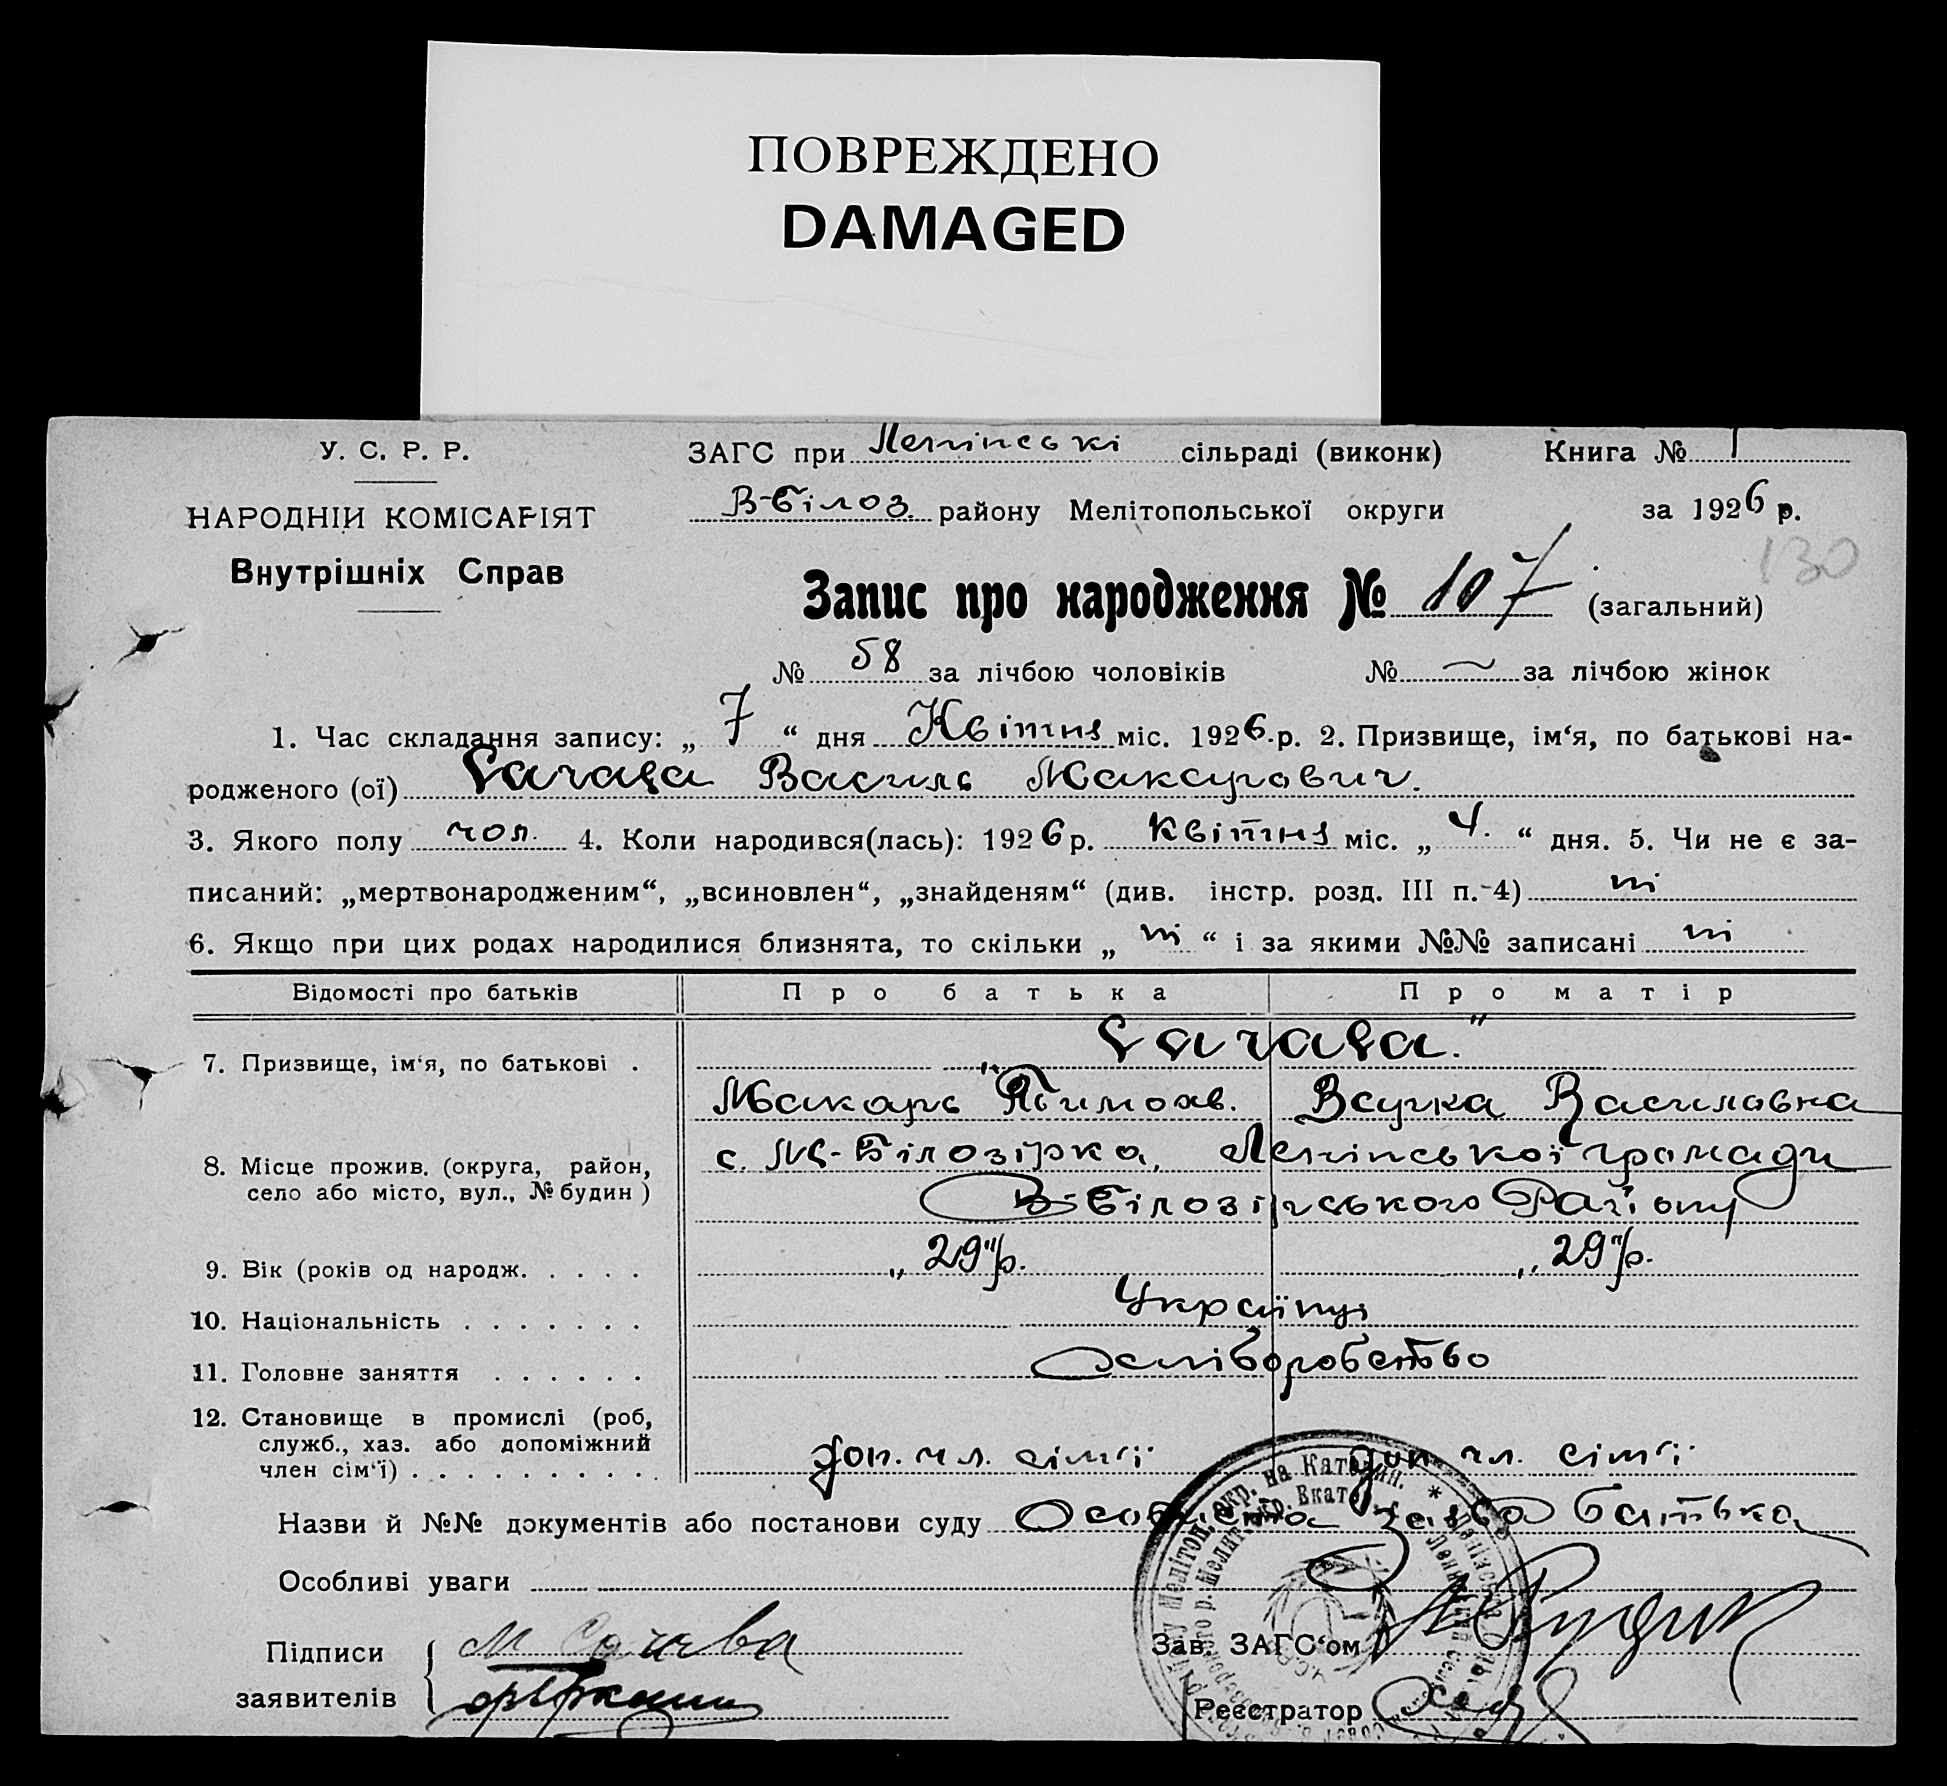 ПОВРЕЖДЕНО
DAMAGED
У. С. Р. Р.
ЗАГС при Ленінські сільраді (виконк)
Книга № 1
НАРОДНІЙ КОМІСАРІЯТ
В-Білоз. району Мелітопольської округи
за 1926 р.
130
Внутрішніх Справ
Запис про народження № 107 (загальний)
№ 58 за лічбою чоловіків № — за лічбою жінок
1. Час складання запису: „ 7 “ дня Квітня міс. 1926 р. 2. Призвище, ім‘я, по батькові на-
родженого (ої) Сачава Василь Макарович.
3. Якого полу чол. 4. Коли народився(лась): 1926 р. Квітня міс. „ 4. “ дня. 5. Чи не є за-
писаний: „мертвонародженим“, „всиновлен“, „знайденям“ (див. інстр. розд. III п.-4) ні
6. Якщо при цих родах народилися близнята, то скільки „ ні “ і за якими №№ записані ні
Відомості про батьків
Про батька
Про матір
„Сачава.“
7. Призвище, ім‘я, по батькові .
Макарь Тимохв. Василовна
8. Місце прожив. (округа, район,
село або місто, вул., № будин )
с. М-Білозірка, Ленінської громади
В-Білозірського Району
9. Вік (років од народж. . . . .
„29“ р. „29“ р.
10. Національність . . . . . . .
Українці
11. Головне заняття . . . . . .
Хліборобство
12. Становище в промислі (роб,
служб., хаз. або допоміжний
член сім‘ї) . . . . . . . . . .
доп. чл. сімʼї доп. чл. сімʼї
Назви й №№ документів або постанови суду Особиста заява батька
Особливі уваги
Підписи
заявителів
М Сачава
Зав. ЗАГС‘ом
Реєстратор